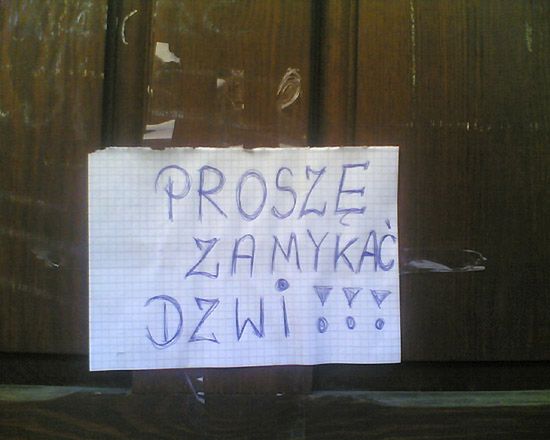 PROSZĘ
ZAMYKAĆ
DZWI!!!